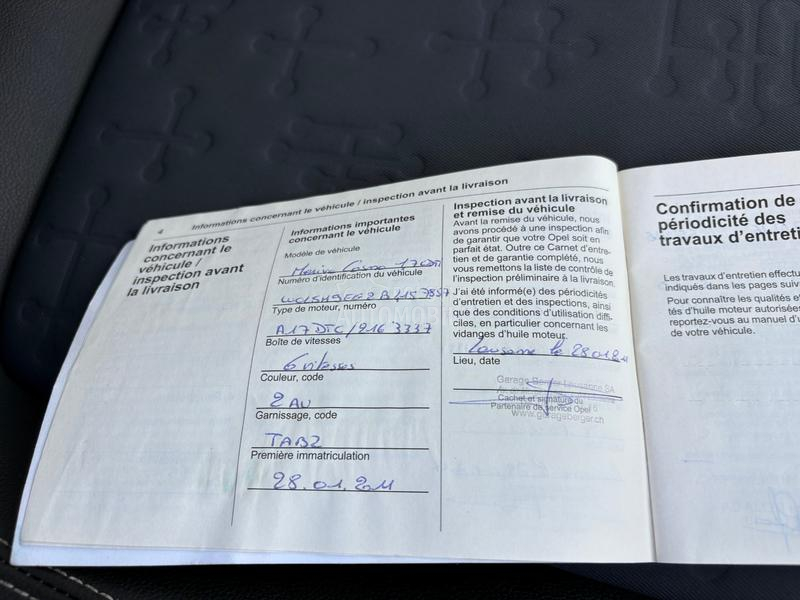 4
Informations concernant le véhicule / inspection avant la livraison
Informations
concernant le
véhicule /
inspection avant
la livraison
Informations importantes
concernant le véhicule
Modèle de véhicule
Meriva Cosmo 1.7CDTI
Numéro d'identification du véhicule
Type de moteur, numéro
A17DTC / 216 3337
Boîte de vitesses
6 vitesses
Couleur, code
2AU
Garnissage, code
TABZ
Première immatriculation
28.01.2011
Inspection avant la livraison
et remise du véhicule
Avant la remise du véhicule, nous
avons procédé à une inspection afin
de garantir que votre Opel soit en
parfait état. Outre ce Carnet d'entre-
tien et de garantie complété, nous
vous remettons la liste de contrôle de
l'inspection préliminaire à la livraison.
J'ai été informé(e) des périodicités
d'entretien et des inspections, ainsi
que des conditions d'utilisation diffi-
ciles, en particulier concernant les
vidanges d'huile moteur.
Lausanne le 28.01.2011
Lieu, date
Garage Berger Lausanne SA
Cachet et signature du
Partenaire de service Opel
www.garageberger.ch
Confirmation de
périodicité des
travaux d'entreti
Les travaux d'entretien effectu
indiqués dans les pages suiv
Pour connaître les qualités et
tés d'huile moteur autorisées
reportez-vous au manuel d'u
de votre véhicule.